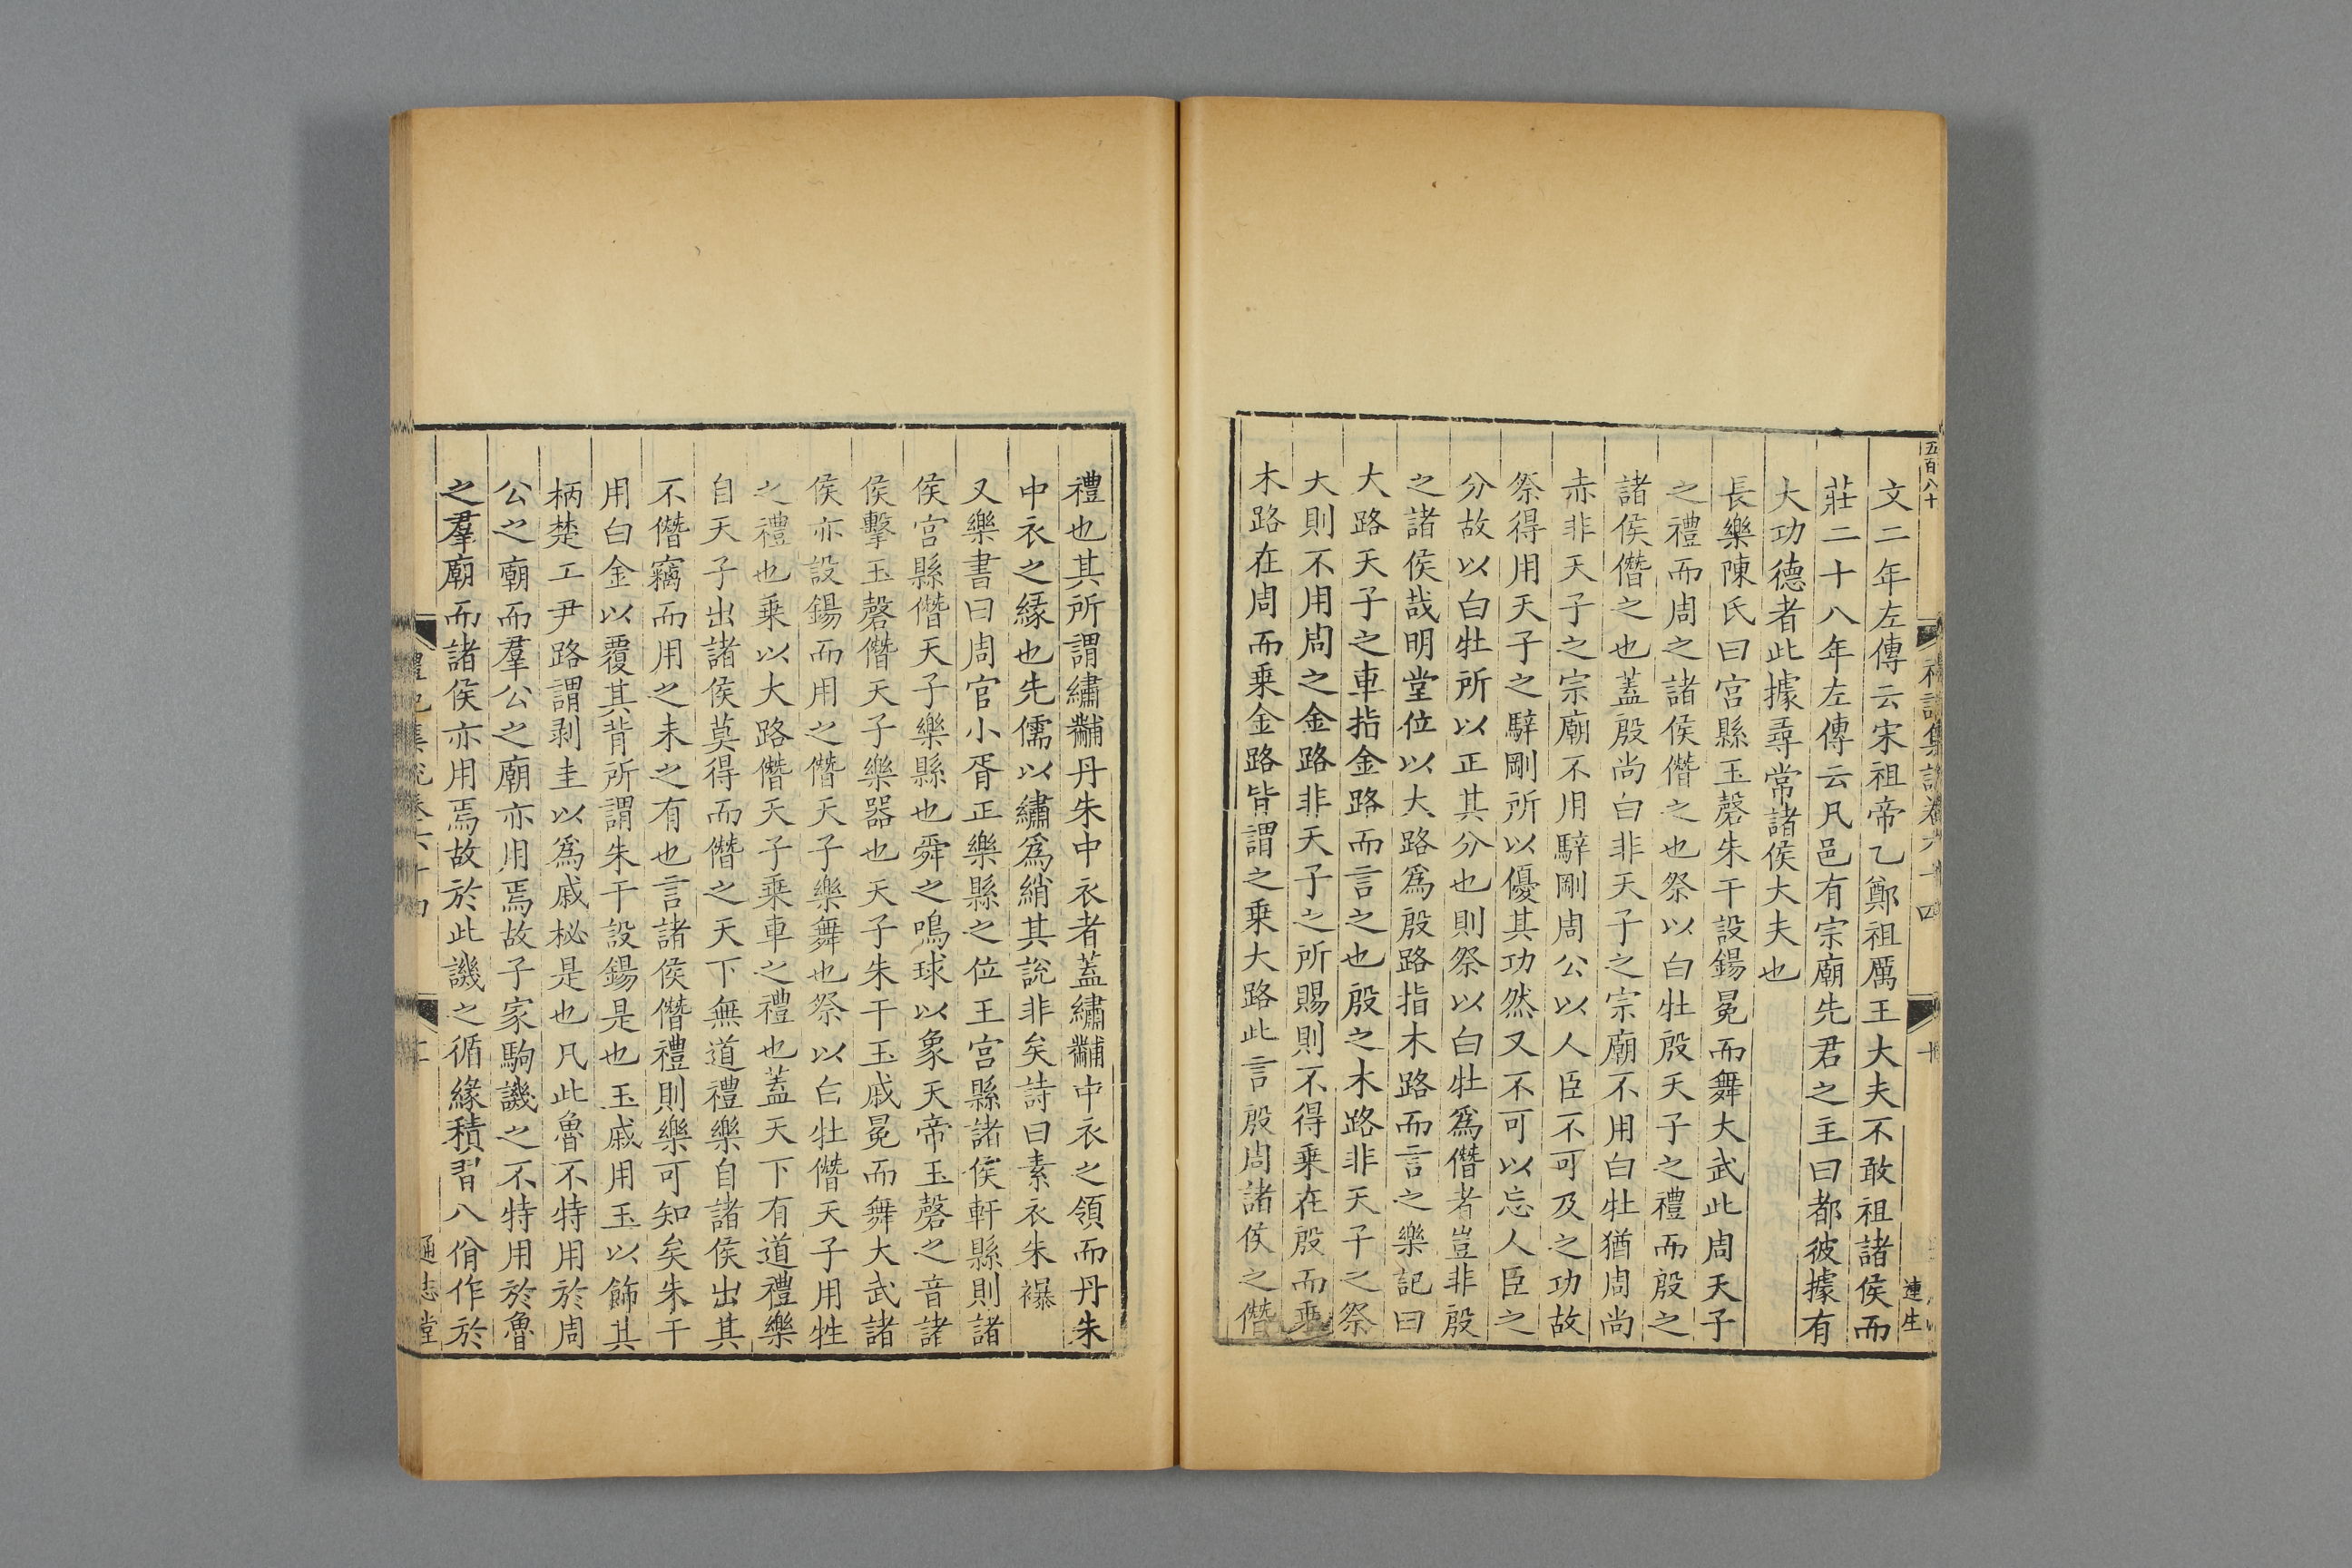 五百八十
禮記集說卷六十四
十
連生
文二年左傳云宋祖帝乙鄭祖厲王大夫不敢祖諸侯而
莊二十八年左傳云凡邑有宗廟先君之主曰都彼據有
大功德者此據尋常諸侯大夫也
長樂陳氏曰宮縣玉磬朱干設錫冕而舞大武此周天子
之禮而周之諸侯僭之也祭以白牡殷天子之禮而殷之
諸侯僭之也蓋殷尚白非天子之宗廟不用白牡猶周尚
赤非天子之宗廟不用騂剛周公以人臣不可及之功故
祭得用天子之騂剛所以優其功然又不可以忘人臣之
分故以白牡所以正其分也則祭以白牡爲僭者豈非殷
之諸侯哉明堂位以大路爲殷路指木路而言之樂記曰
大路天子之車指金路而言之也殷之木路非天子之祭
大則不用周之金路非天子之所賜則不得乗在殷而乗
木路在周而乗金路皆謂之乗大路此言殷周諸侯之僭
禮也其所謂繡黼丹朱中衣者蓋繡黼中衣之領而丹朱
中衣之緣也先儒以繡爲綃其說非矣詩曰素衣朱襮
又樂書曰周官小胥正樂縣之位王宮縣諸侯軒縣則諸
侯宮縣僭天子樂縣也舜之鳴球以象天帝玉磬之音諸
侯擊玉磬僭天子樂器也天子朱干玉戚冕而舞大武諸
侯亦設錫而用之僭天子樂舞也祭以白牡僭天子用牲
之禮也乗以大路僭天子乗車之禮也蓋天下有道禮樂
自天子出諸侯莫得而僭之天下無道禮樂自諸侯出其
不僭竊而用之未之有也言諸侯僭禮則樂可知矣朱干
用白金以覆其背所謂朱干設錫是也玉戚用玉以飾其
柄楚工尹路謂剥圭以爲戚柲是也凡此魯不特用於周
公之廟而羣公之廟亦用焉故子家駒譏之不特用於魯
之羣廟而諸侯亦用焉故於此譏之循緣積習八佾作於
禮記集說卷六十四
通志堂